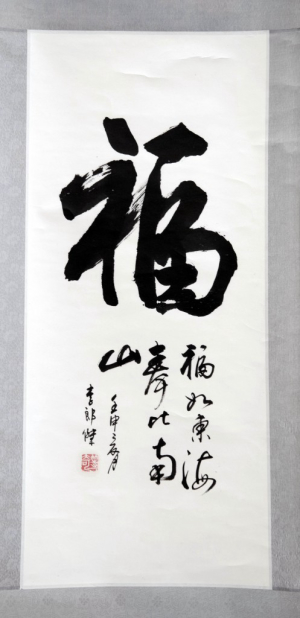 福
福如東海
寿比南
山
壬申月
李郎傑